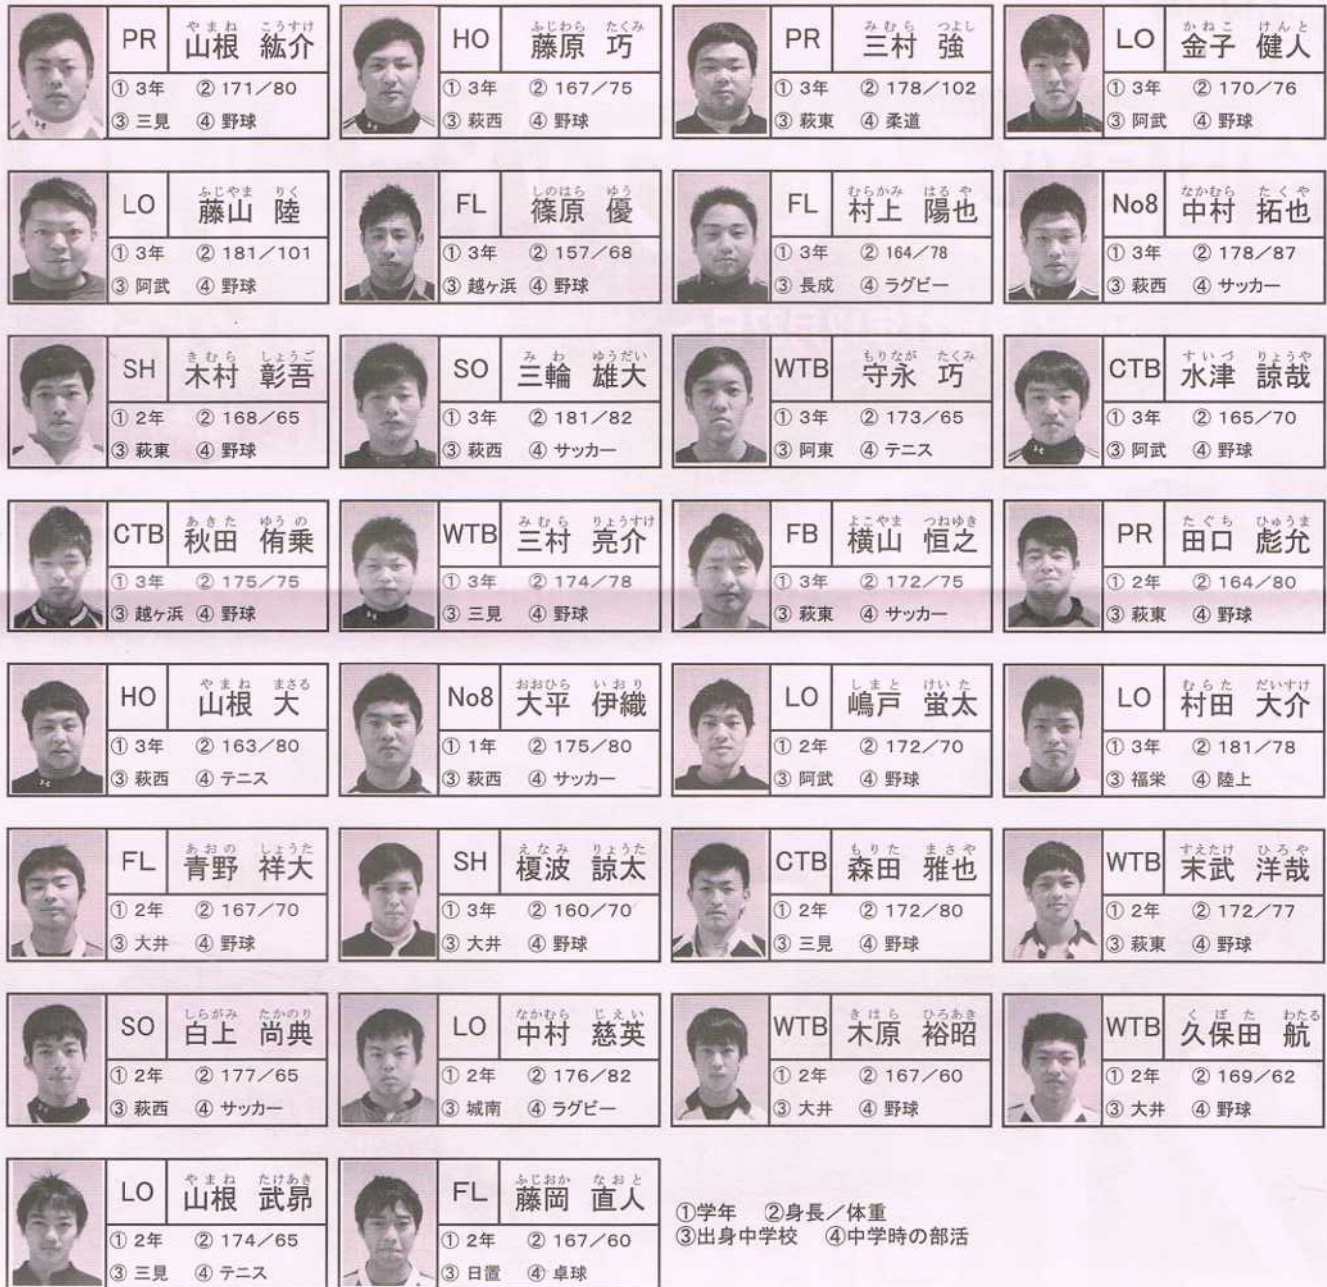 やまね こうすけ
PR 山根 紘介
① 3年 ② 171／80
③ 三見 ④ 野球
ふじわら たくみ
HO 藤原 巧
① 3年 ② 167／75
③ 萩西 ④ 野球
みむら つよし
PR 三村 強
① 3年 ② 178／102
③ 萩東 ④ 柔道
かねこ けんと
LO 金子 健人
① 3年 ② 170／76
③ 阿武 ④ 野球
ふじやま りく
LO 藤山 陸
① 3年 ② 181／101
③ 阿武 ④ 野球
しのはら ゆう
FL 篠原 優
① 3年 ② 157／68
③ 越ヶ浜 ④ 野球
むらかみ はるや
FL 村上 陽也
① 3年 ② 164／78
③ 長成 ④ ラグビー
なかむら たくや
No8 中村 拓也
① 3年 ② 178／87
③ 萩西 ④ サッカー
きむら しょうご
SH 木村 彰吾
① 2年 ② 168／65
③ 萩東 ④ 野球
みわ ゆうだい
SO 三輪 雄大
① 3年 ② 181／82
③ 萩西 ④ サッカー
もりなが たくみ
WTB 守永 巧
① 3年 ② 173／65
③ 阿東 ④ テニス
すいづ りょうや
CTB 水津 諒哉
① 3年 ② 165／70
③ 阿武 ④ 野球
あきた ゆうの
CTB 秋田 侑乗
① 3年 ② 175／75
③ 越ヶ浜 ④ 野球
みむら りょうすけ
WTB 三村 亮介
① 3年 ② 174／78
③ 三見 ④ 野球
よこやま つねゆき
FB 横山 恒之
① 3年 ② 172／75
③ 萩東 ④ サッカー
たぐち ひゅうま
PR 田口 彪允
① 2年 ② 164／80
③ 萩東 ④ 野球
やまね まさる
HO 山根 大
① 3年 ② 163／80
③ 萩西 ④ テニス
おおひら いおり
No8 大平 伊織
① 1年 ② 175／80
③ 萩西 ④ サッカー
しまと けいた
LO 嶋戸 蛍太
① 2年 ② 172／70
③ 阿武 ④ 野球
むらた だいすけ
LO 村田 大介
① 3年 ② 181／78
③ 福栄 ④ 陸上
あおの しょうた
FL 青野 祥大
① 2年 ② 167／70
③ 大井 ④ 野球
えなみ りょうた
SH 榎波 諒太
① 3年 ② 160／70
③ 大井 ④ 野球
もりた まさや
CTB 森田 雅也
① 2年 ② 172／80
③ 三見 ④ 野球
すえたけ ひろや
WTB 末武 洋哉
① 2年 ② 172／77
③ 萩東 ④ 野球
しらがみ たかのり
SO 白上 尚典
① 2年 ② 177／65
③ 萩西 ④ サッカー
なかむら じえい
LO 中村 慈英
① 2年 ② 176／82
③ 城南 ④ ラグビー
きはら ひろあき
WTB 木原 裕昭
① 2年 ② 167／60
③ 大井 ④ 野球
くぼた わたる
WTB 久保田 航
① 2年 ② 169／62
③ 大井 ④ 野球
やまね たけあき
LO 山根 武昴
① 2年 ② 174／65
③ 三見 ④ テニス
ふじおか なおと
FL 藤岡 直人
① 2年 ② 167／60
③ 日置 ④ 卓球
①学年 ②身長／体重
③出身中学校 ④中学時の部活